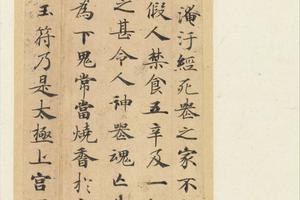 淹汙經死喪之家不
假人禁食五辛及一
之甚令人神喪魂亡生
為下鬼常當燒香於
玉符乃是太極上宮